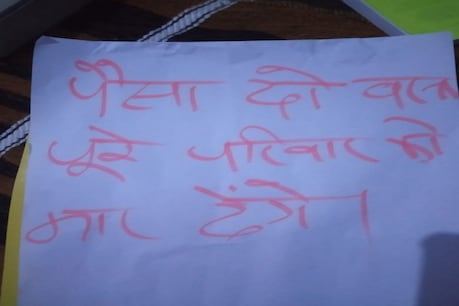 पैसा दो वरना
पूरे परिवार को
मार देंगे।